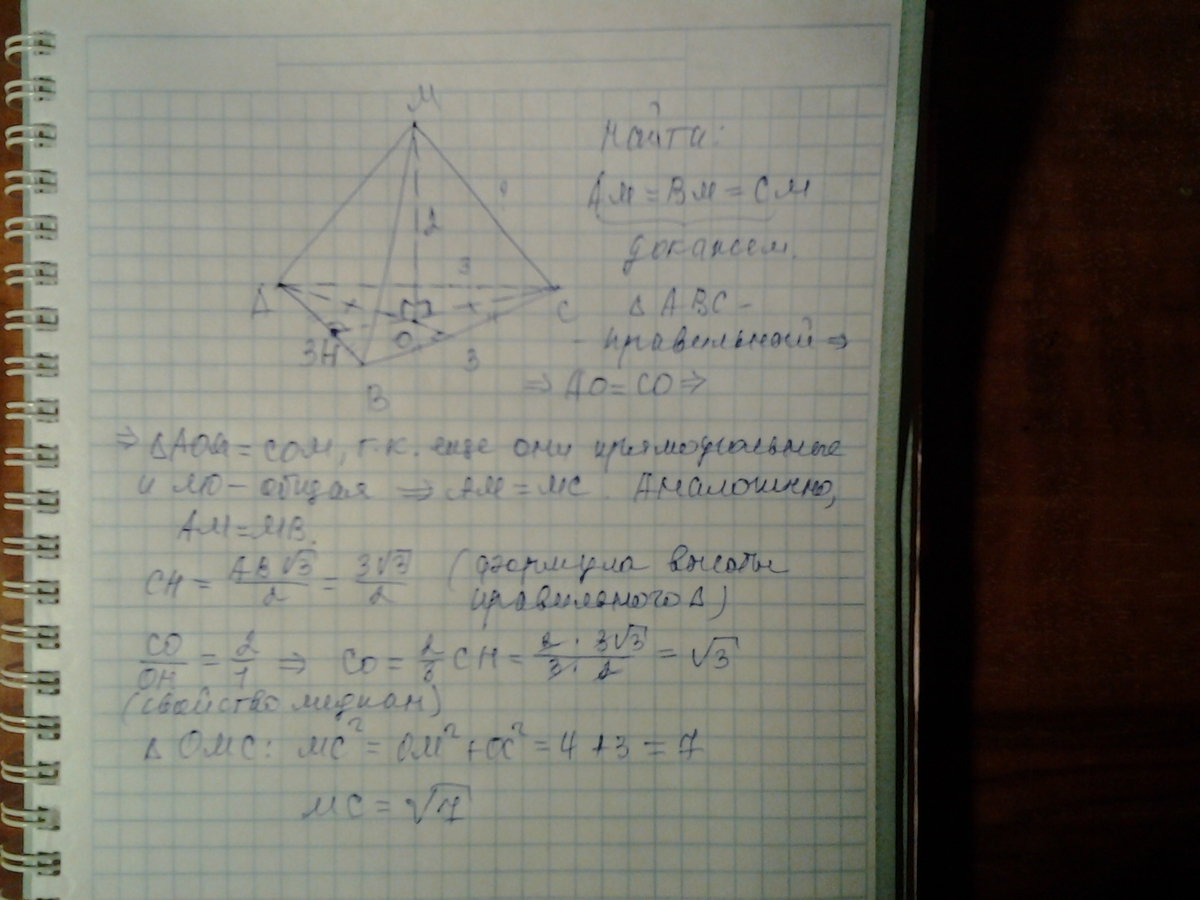 M
Найти:
AM = BM = CM
докажем.
2
3
A
C
O
3
H
3
B
Δ ABC –
– правильный ⇒
⇒ AO = CO ⇒
⇒ ΔAOM = COM, т.к. еще они прямоугольные
и MO – общая ⇒ AM = MC. Аналогично,
AM = MB.
CH = AB√3/2 = 3√3/2 (формула высоты
правильного Δ)
CO/OH = 2/1 ⇒ CO = 2/3 CH = 2 · 3√3/3 · 2 = √3
(свойство медиан)
Δ OMC: MC² = OM² + OC² = 4 + 3 = 7
MC = √7